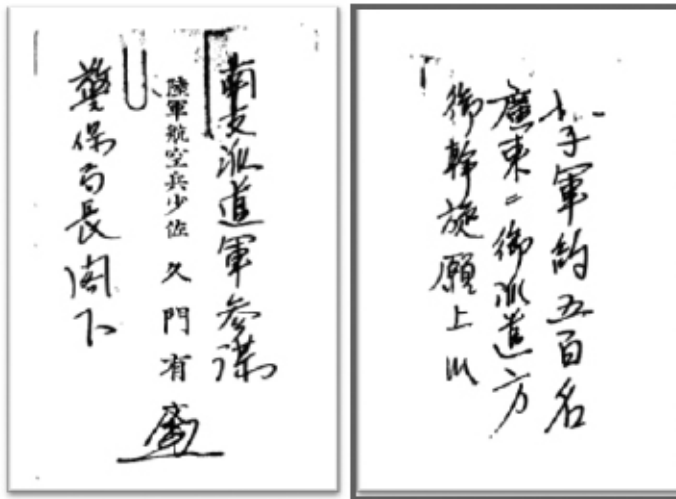 南支派遣軍参謀
陸軍航空兵少佐 久門有
警保局長閣下
子軍約五百名
廣東ニ御派遣方
御斡旋願上候